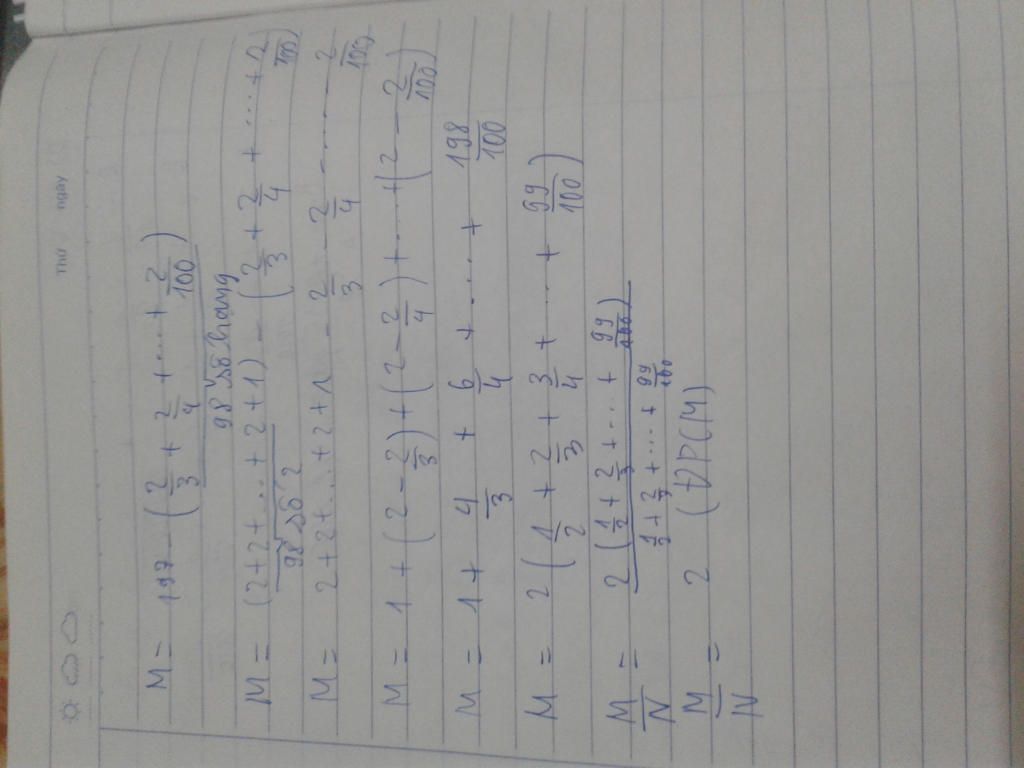 Thứ ngày
M = 197 - (2/3 + 2/4 + .... + 2/100)
98 số hạng
M = (2+2+....+2+1) - (2/3 + 2/4 + ..... + 2/100)
98 số 2
M = 2+2+....+2+1 - 2/3 - 2/4 - ..... - 2/100
M = 1 + (2 - 2/3) + (2 - 2/4) + ..... + (2 - 2/100)
M = 1 + 4/3 + 6/4 + ..... + 198/100
M = 2 (1/2 + 2/3 + 3/4 + ..... + 99/100)
M/N = 2 (1/2 + 2/3 + .... + 99/100) / 1/2 + 2/3 + .... + 99/100
M/N = 2 (ĐPCM)